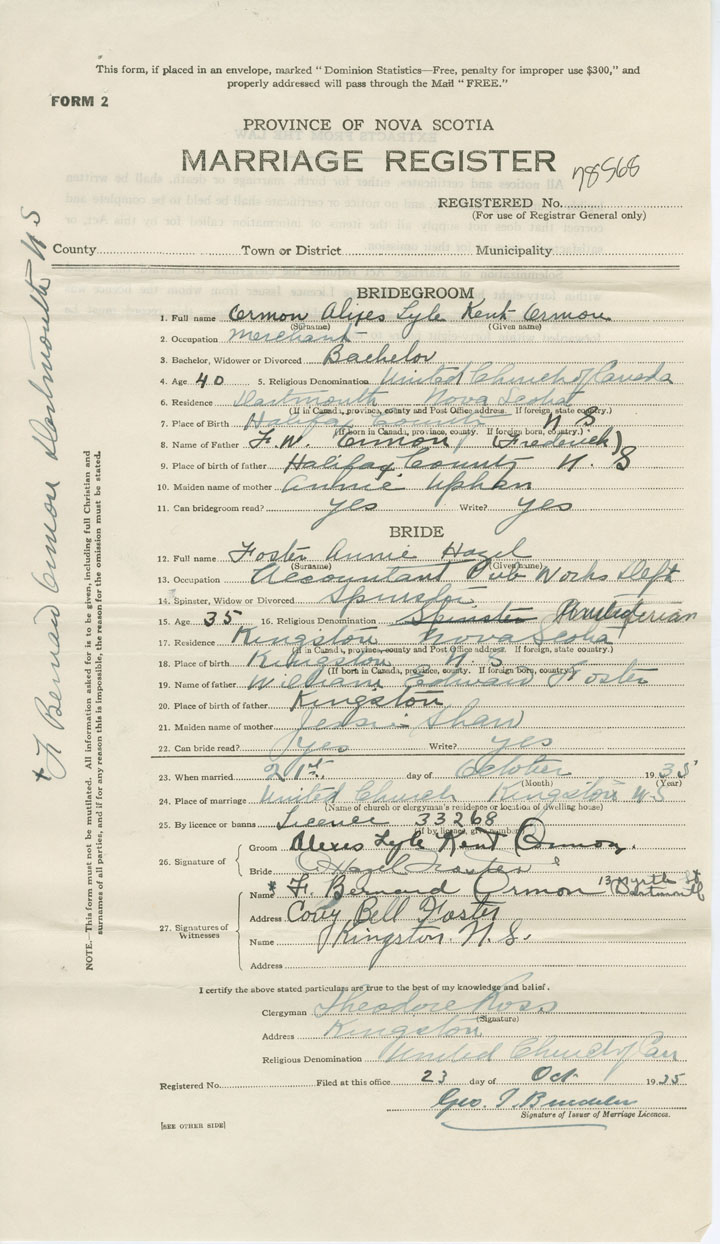 This form, if placed in an envelope, marked "Dominion Statistics—Free, penalty for improper use $300," and
properly addressed will pass through the Mail "FREE."
FORM 2
PROVINCE OF NOVA SCOTIA
MARRIAGE REGISTER
78568
REGISTERED No.
(For use of Registrar General only)
County Town or District Municipality
BRIDEGROOM
1. Full name Ormon Lyle Kent Ormon
(Surname) (Given name)
2. Occupation Merchant
3. Bachelor, Widower or Divorced Bachelor
4. Age 40 5. Religious Denomination United Church of Canada
6. Residence Dartmouth Nova Scotia
(If in Canada, province, county and Post Office address. If foreign, state country.)
7. Place of Birth Halifax County N S
(If born in Canada, province, county. If foreign born, country.)
8. Name of Father F. W. Ormon (Frederick)
9. Place of birth of father Halifax County N. S
10. Maiden name of mother Annie
11. Can bridegroom read? yes Write? yes
BRIDE
12. Full name Foster Annie Hazel
(Surname) (Given name)
13. Occupation Accountant Pub Works Dept
14. Spinster, Widow or Divorced Spinster
15. Age 35 16. Religious Denomination Spinster
17. Residence Kingston Nova Scotia
(If in Canada, province, county and Post Office address. If foreign, state country.)
18. Place of birth Kingston N. S
(If born in Canada, province, county. If foreign born, country.)
19. Name of father William Edward Foster
20. Place of birth of father Kingston
21. Maiden name of mother Jessie Shaw
22. Can bride read? Yes Write? yes
23. When married 21st day of October 1935
(Month) (Year)
24. Place of marriage United Church Kingston N S
(Name of church or clergyman's residence or location of dwelling house)
25. By licence or banns License 33268
(If by licence, give number)
26. Signature of
Groom Alexis Lyle Kent Ormon.
Bride Hazel Foster
27. Signatures of Witnesses
Name * F. Bernard Ormon 13 Myrtle St Dartmouth
Address Bell Foster
Name Kingston. N. S.
Address
I certify the above stated particulars are true to the best of my knowledge and belief.
Clergyman Theodore Ross
(Signature)
Address Kingston
Religious Denomination United Church of Can
Registered No. Filed at this office 23 day of Oct 1935
Geo.
Signature of Issuer of Marriage Licences.
[SEE OTHER SIDE]
NOTE.—This form must not be mutilated. All information asked for is to be given, including full Christian and
surnames of all parties, and if for any reason this is impossible, the reason for the omission must be stated.
+ F Bernard Ormon Dartmouth N S